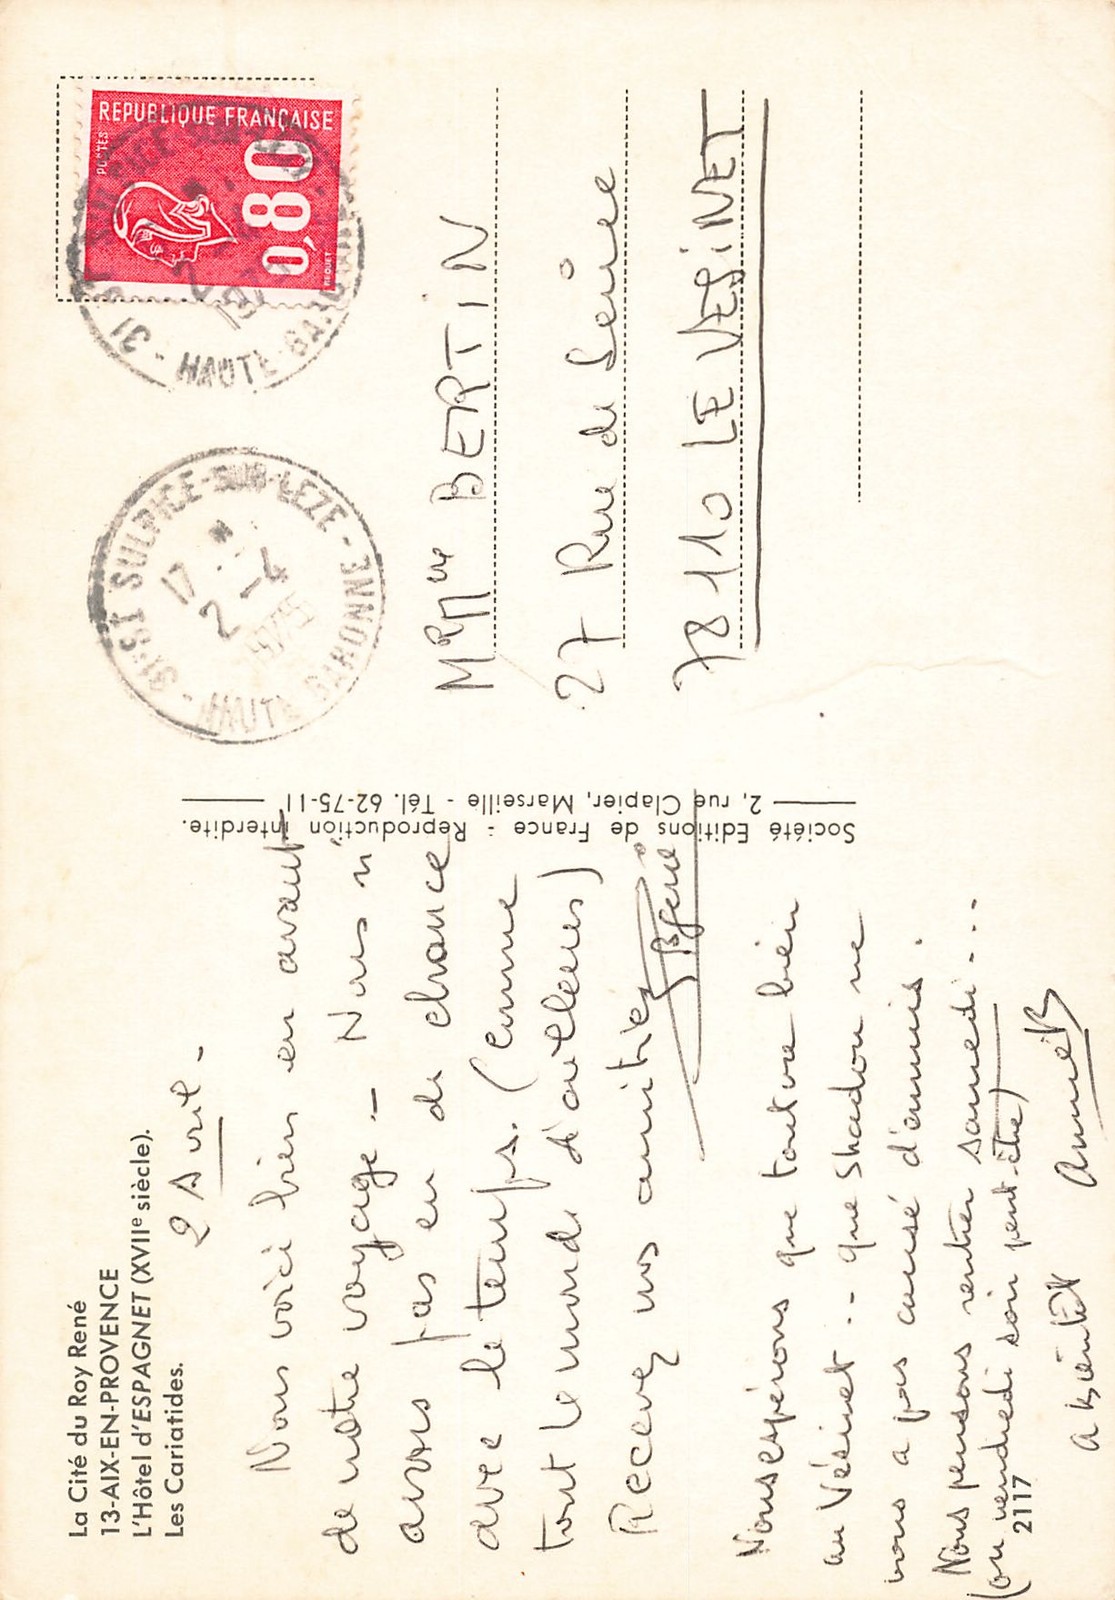 La Cité du Roy René
13-AIX-EN-PROVENCE
L'Hôtel d'ESPAGNET (XVIIe siècle).
Les Cariatides.
2 Avril -
Nous voici bien en avant
de notre voyage - Nous n'
avons pas eu de chance
avec le temps. (comme
tout le monde d'ailleurs)
Recevez nos amitiés
Nous espérons que tout va bien
au Vésinet -- que Shadow ne
vous a pas causé d'ennuis.
Nous pensons rentrer samedi ---
(ou vendredi soir peut-être)
A bientôt Annie B
2117
Société Editions de France - Reproduction interdite.
2, rue Clapier, Marseille - Tél. 62-75-11
REPUBLIQUE FRANÇAISE
POSTES
0,80
BEQUET
31 - HAUTE-GARONNE
31 ST SULPICE-SUR-LEZE - HAUTE GARONNE
17
2 -4
1975
Mr Mme BERTIN
27 Rue de
78110 LE VESINET